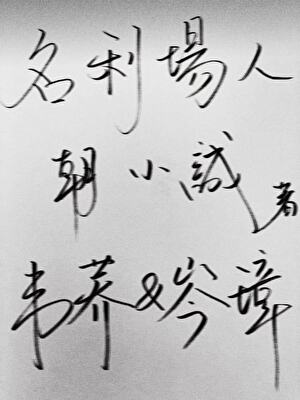 名利場人
朝小誠 者
韦荞&岑璋